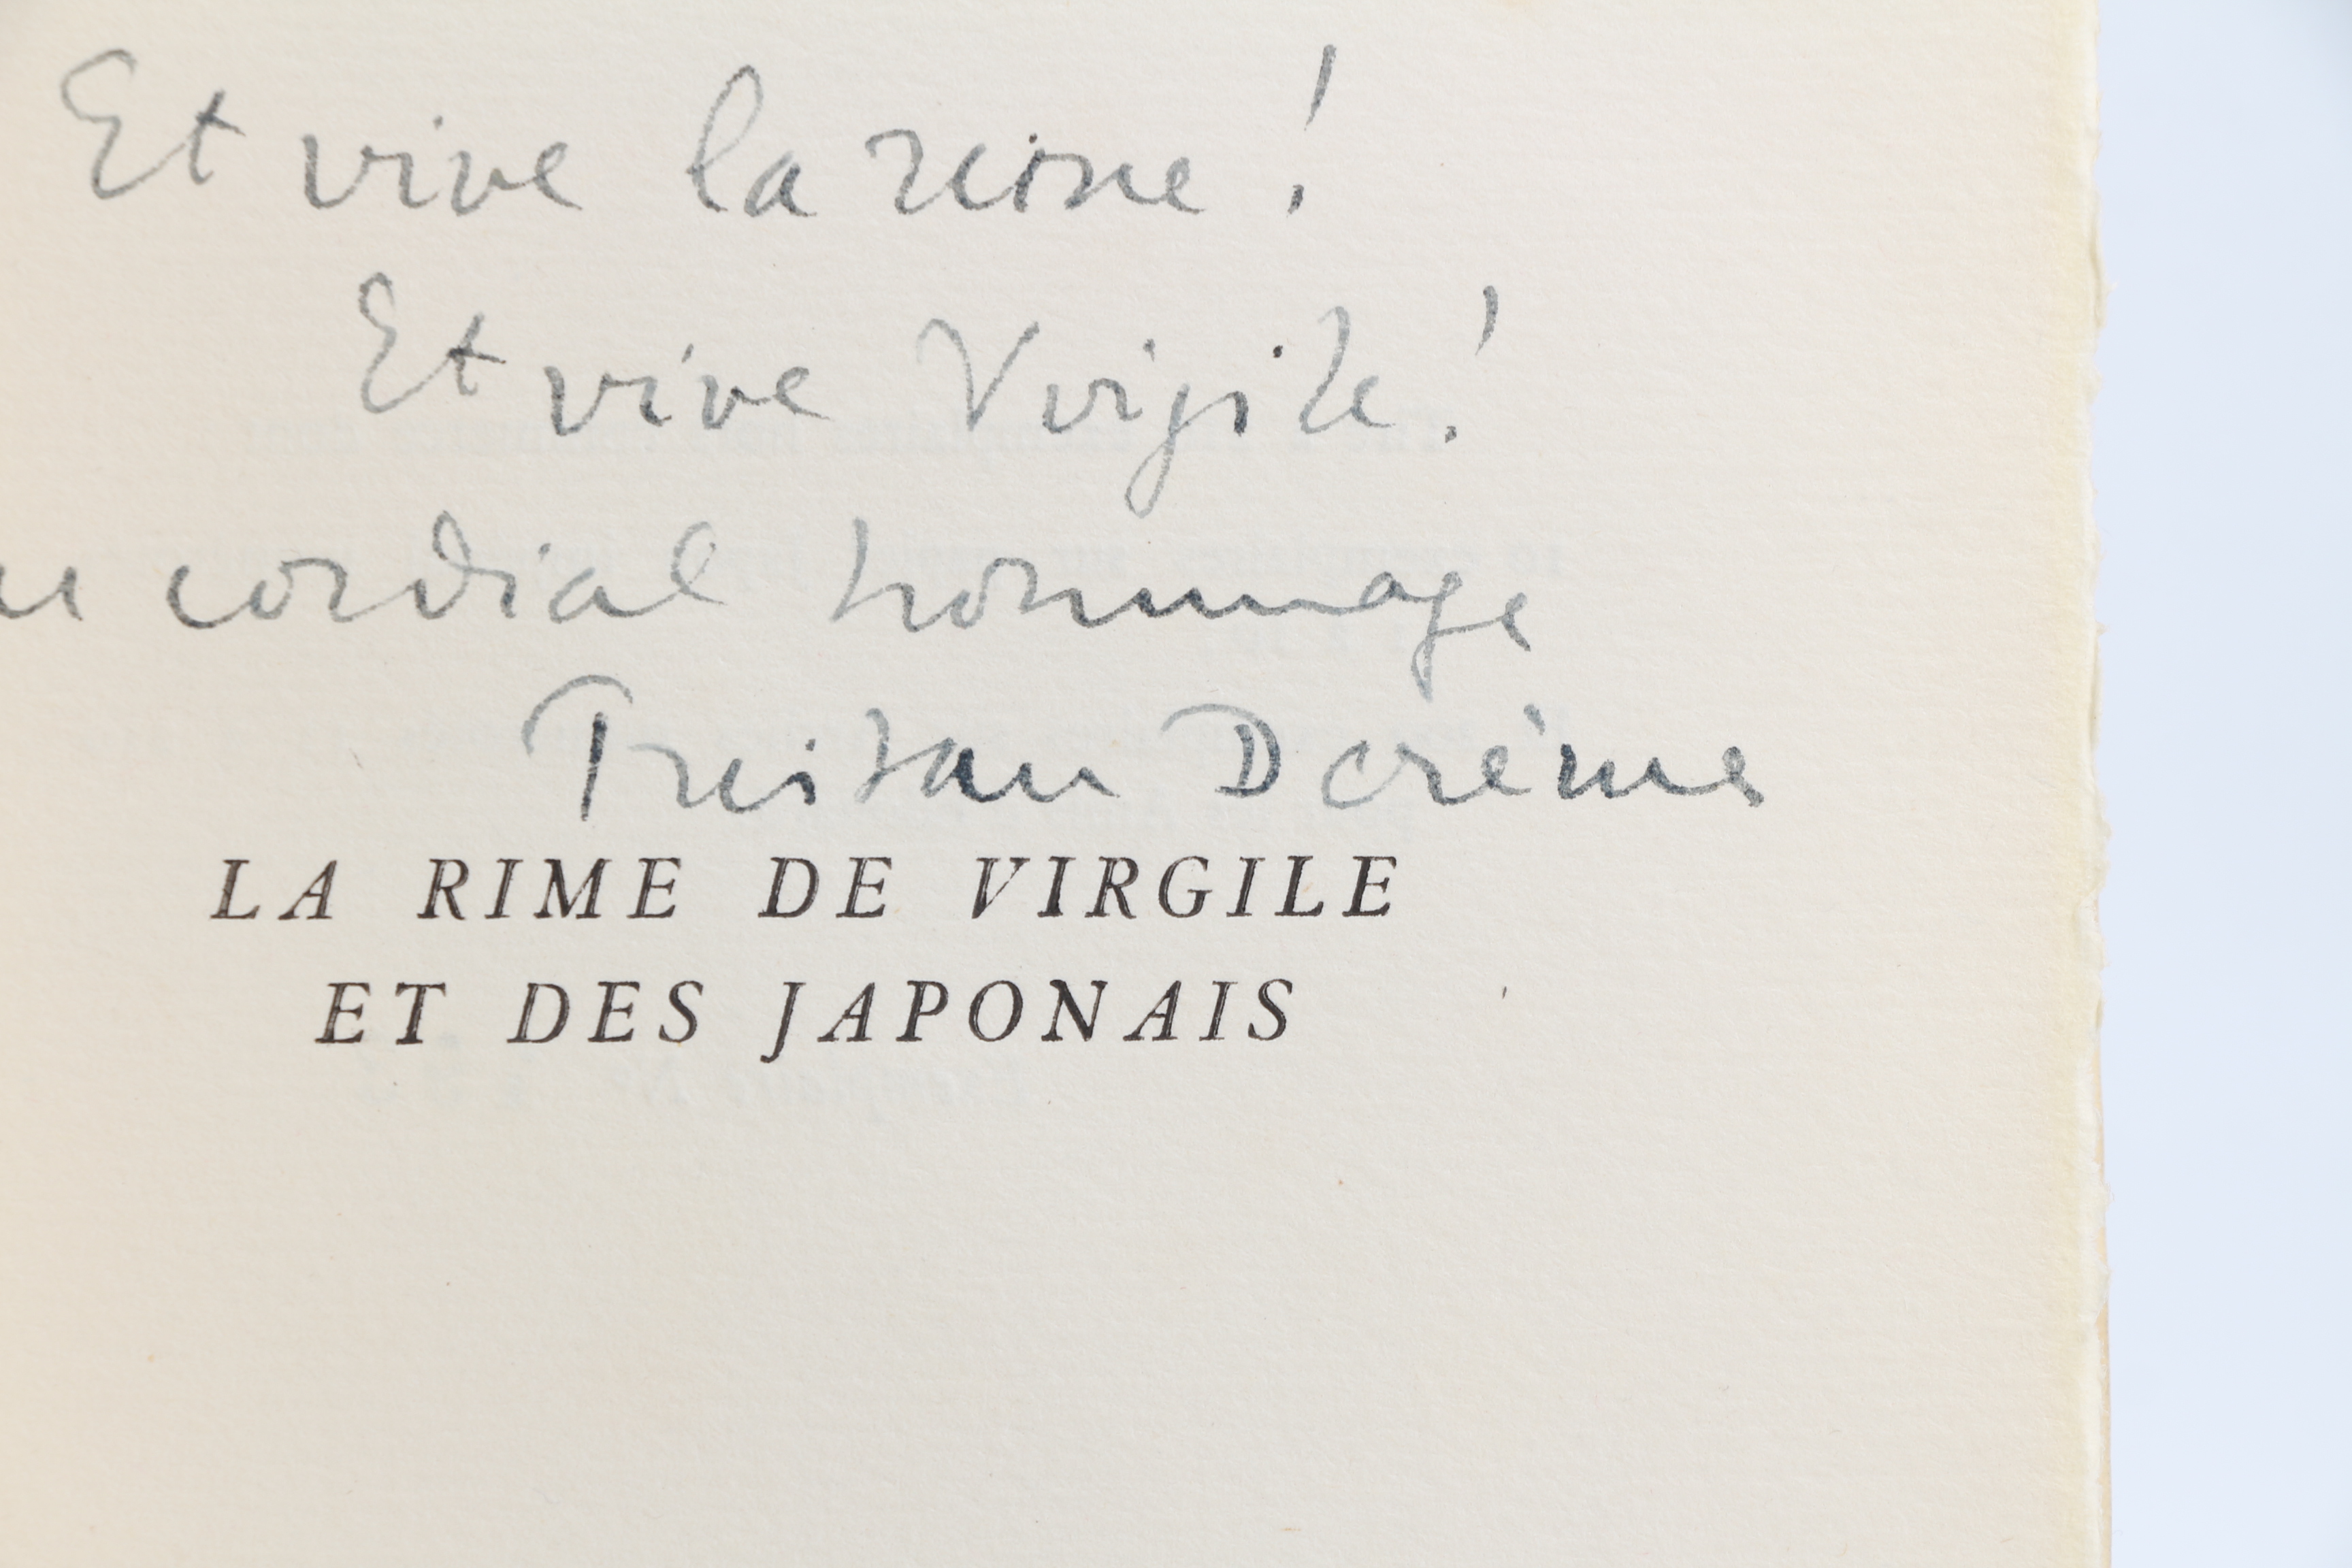 Et vive la rime !
Et vive Virgile !
cordial hommage
Tristan Derème
LA RIME DE VIRGILE
ET DES JAPONAIS